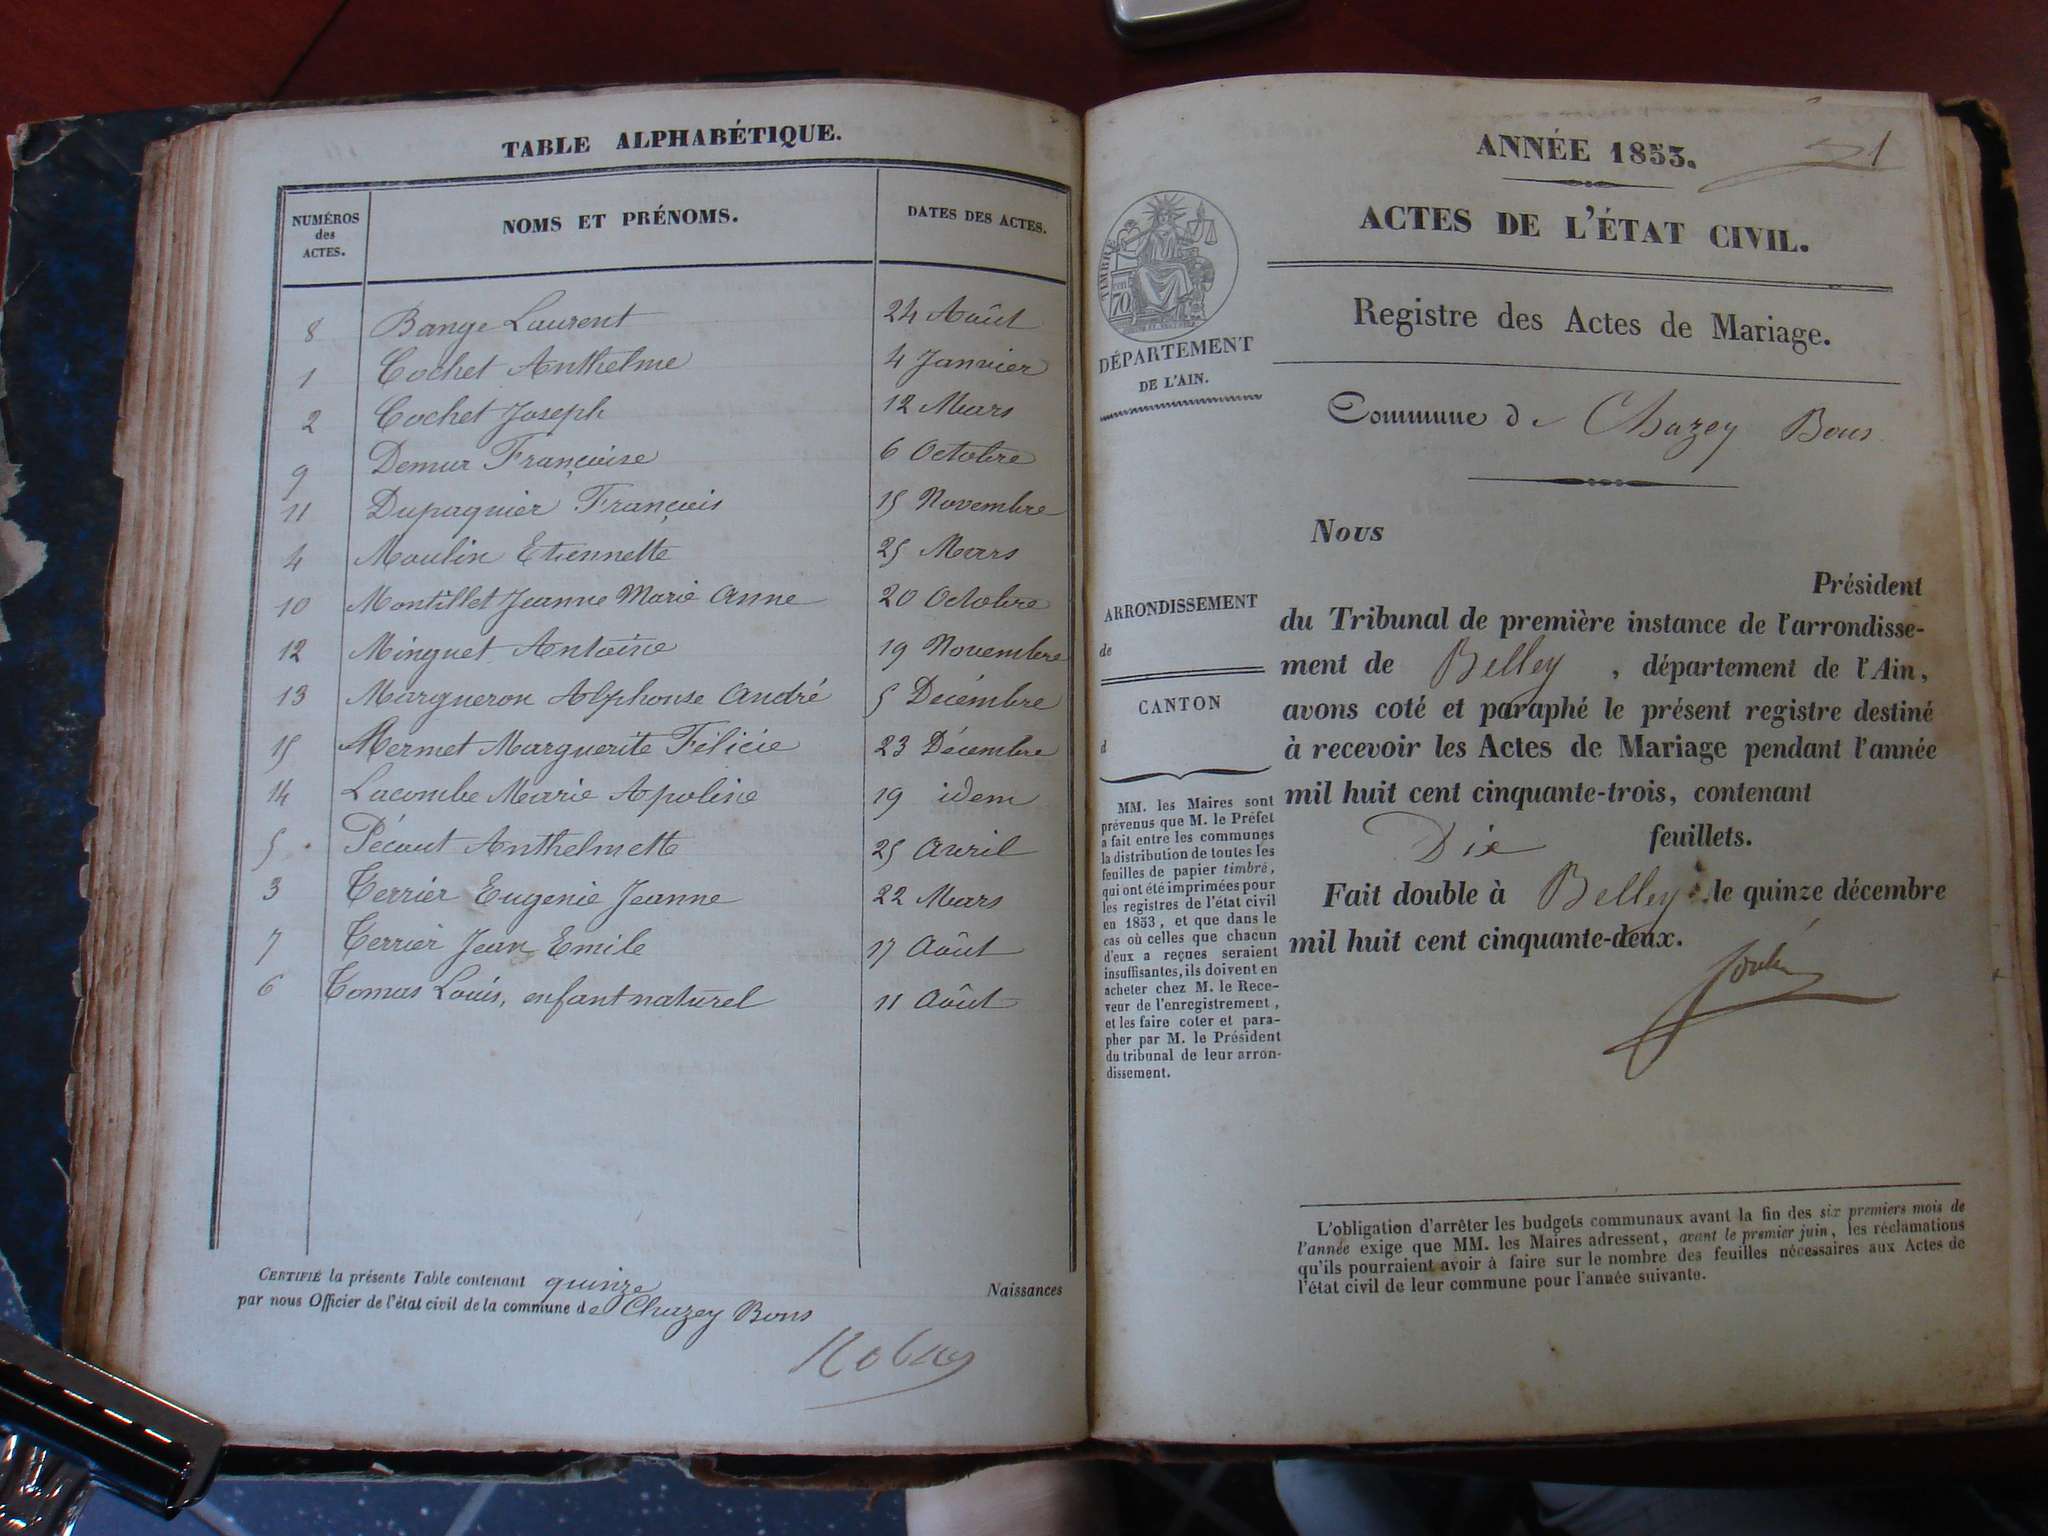 TABLE ALPHABÉTIQUE.
NUMÉROS des ACTES. NOMS ET PRÉNOMS. DATES DES ACTES.
8 Bange Laurent 24 Août
1 Cochet Anthelme 4 Janvier
2 Cochet Joseph 12 Mars
9 Demur Françoise 6 Octobre
11 Dupaquier François 15 Novembre
4 Moulin Etiennette 25 Mars
10 Montillet Jeanne Marie Anne 20 Octobre
12 Minguet Antoine 19 Novembre
13 Margueron Alphonse André 5 Décembre
15 Mermet Marguerite Félicie 23 Décembre
14 Lacombe Marie Apoline 19 idem
5 Pécout Anthelmette 25 Avril
3 Terrier Eugenie Jeanne 22 Mars
7 Terrier Jean Emile 17 Août
6 Tomas Louis, enfant naturel 11 Août
CERTIFIÉ la présente Table contenant quinze Naissances
par nous Officier de l'état civil de la commune de Chazey Bons
ANNÉE 1853.
ACTES DE L'ÉTAT CIVIL.
Registre des Actes de Mariage.
TIMBRE
70
DÉPARTEMENT
DE L'AIN.
Commune de Chazey Bons
ARRONDISSEMENT
de
CANTON
d
MM. les Maires sont
prévenus que M. le Préfet
a fait entre les communes
la distribution de toutes les
feuilles de papier timbré,
qui ont été imprimées pour
les registres de l'état civil
en 1853, et que dans le
cas où celles que chacun
d'eux a reçues seraient
insuffisantes, ils doivent en
acheter chez M. le Rece-
veur de l'enregistrement,
et les faire coter et para-
pher par M. le Président
du tribunal de leur arron-
dissement.
Nous
Président
du Tribunal de première instance de l'arrondisse-
ment de Belley, département de l'Ain,
avons coté et paraphé le présent registre destiné
à recevoir les Actes de Mariage pendant l'année
mil huit cent cinquante-trois, contenant
Dix feuillets.
Fait double à Belley le quinze décembre
mil huit cent cinquante-deux.
L'obligation d'arrêter les budgets communaux avant la fin des six premiers mois de
l'année exige que MM. les Maires adressent, avant le premier juin, les réclamations
qu'ils pourraient avoir à faire sur le nombre des feuilles nécessaires aux Actes de
l'état civil de leur commune pour l'année suivante.